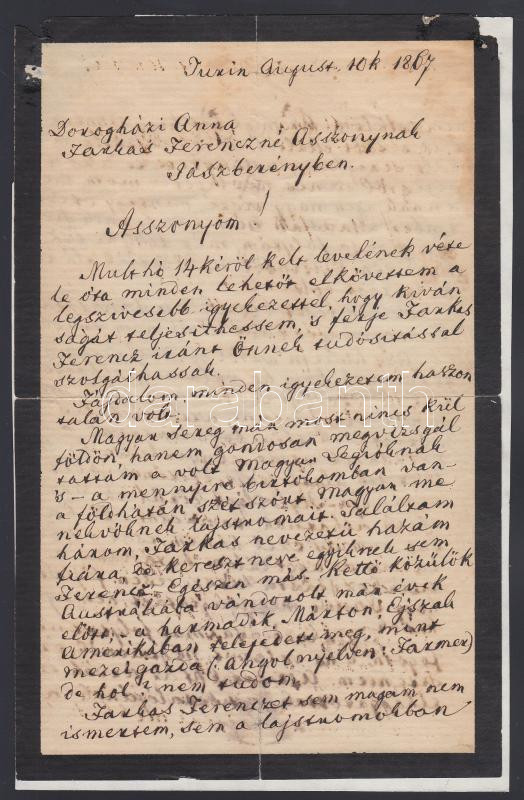 Turin August 10k 1867
Dorogházi Anna
Farkas Ferenczné Asszonynak
Jászberényben.
Asszonyom!
Mult hó 14kéről kelt levelének véte
le óta minden lehetőt elkövettem a
legszivesebb igyekezettel, hogy kiván
ságát teljesithessem, 's férje Farkas
Ferencz iránt Önnek tudósitással
szolgálhassak.
Fájdalom, minden igyekezetem haszon
talan volt.
Magyar sereg már most nincs kül
földön, hanem gondosan megvizsgál
tattam a volt Magyar Legióknak
's – a mennyire birtokomban van –
a földhátán szétszórt magyar me
nekvőknek lajstromait. Találtam
három, Farkas nevezetű hazám
fiára, de keresztneve egyiknek sem
Ferencz. Egészen más. Kettő közülök
Australiába vándorolt már évek
előtt, – a harmadik, Márton, Éjszak
Amerikában telepedett meg, mint
mezei gazda (: angol nyelven: Farmer)
de hol? nem tudom.
Farkas Ferenczet sem magam nem
ismertem, sem a lajstromokban
darabanth